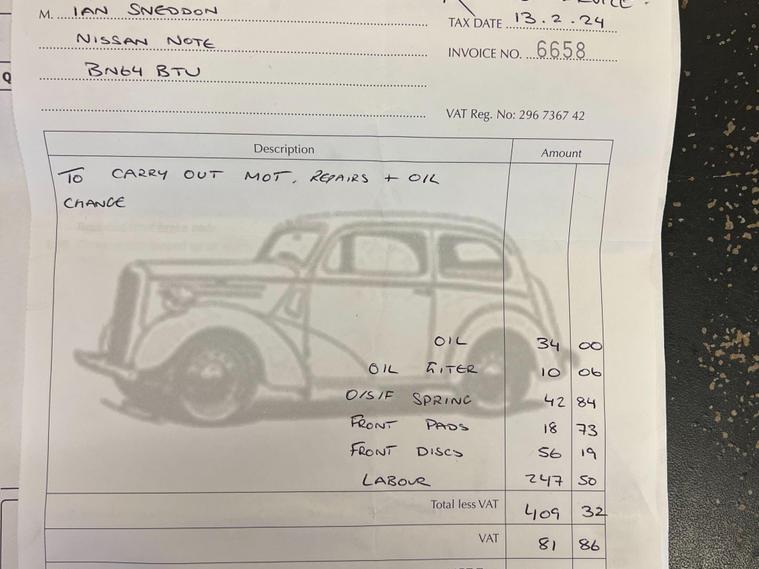 M. IAN SNEDDON
TAX DATE 13.2.24
NISSAN NOTE
INVOICE NO. 6658
BN64 BTU
VAT Reg. No: 296 7367 42
Description Amount
TO CARRY OUT MOT, REPAIRS + OIL
CHANGE
OIL 34 00
OIL FITER 10 06
O/S/F SPRING 42 84
FRONT PADS 18 73
FRONT DISCS 56 19
LABOUR 247 50
Total less VAT 409 32
VAT 81 86